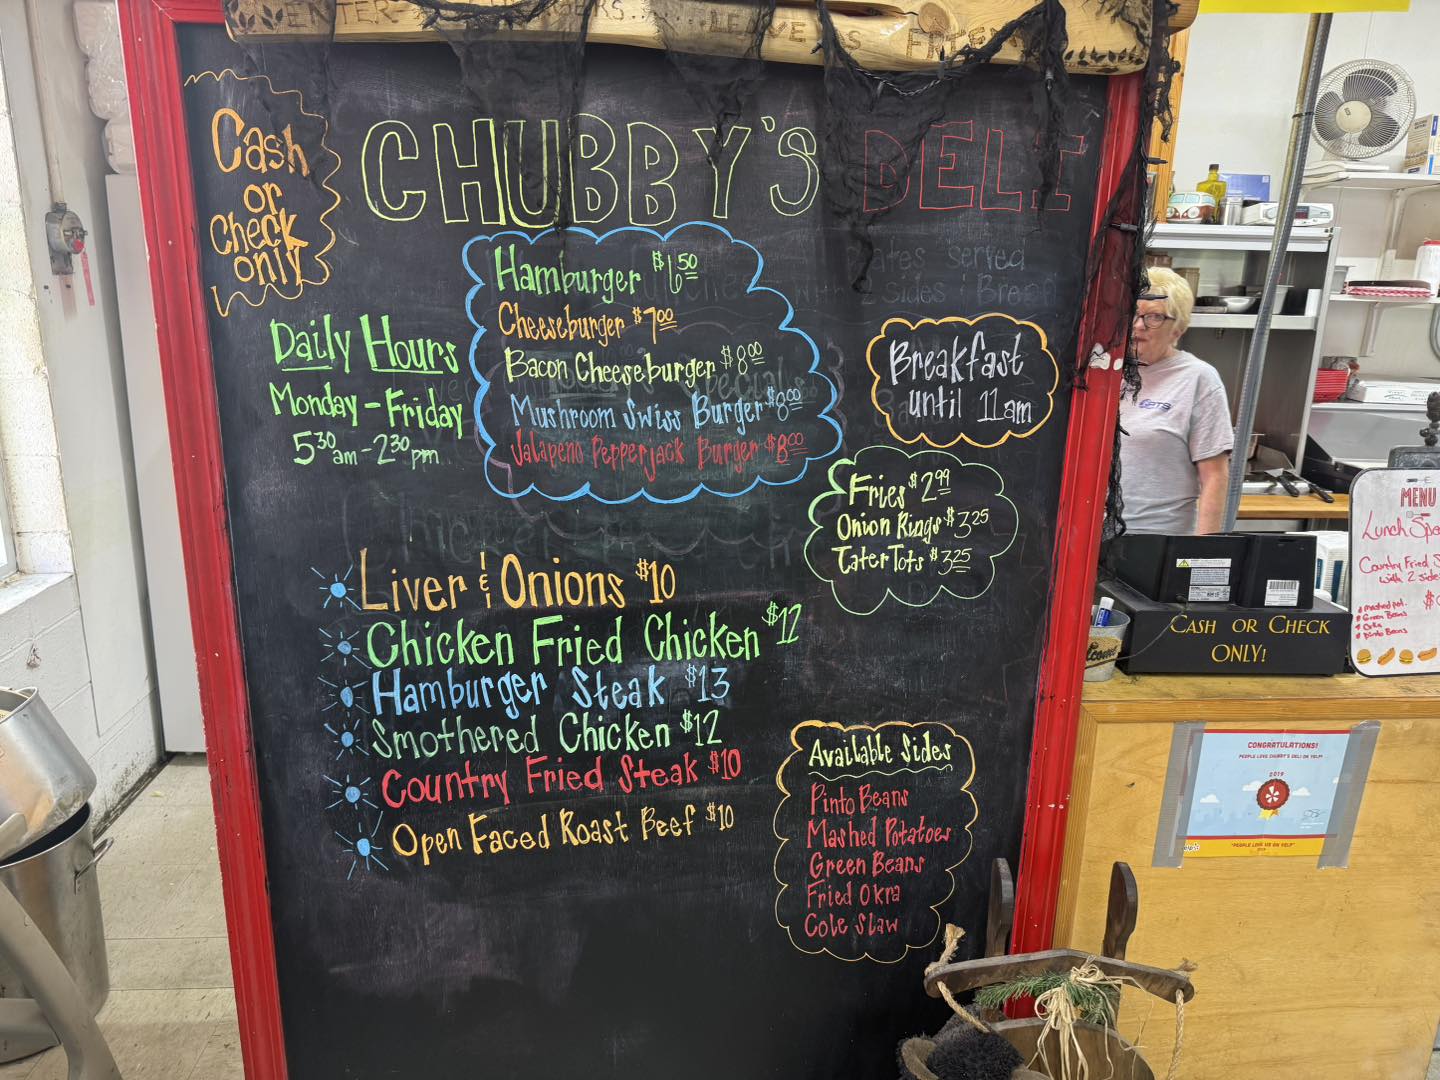 ENTER
LEAVE AS FRIENDS
Cash
or
Check
only
CHUBBY'S DELI
Hamburger $6.50
Cheeseburger $7.00
Bacon Cheeseburger $8.00
Mushroom Swiss Burger $8.00
Jalapeno Pepperjack Burger $8.00
Daily Hours
Monday - Friday
5:30 am - 2:30 pm
Breakfast
until 11am
Fries $2.99
Onion Rings $3.25
Tater Tots $3.25
Liver & Onions $10
Chicken Fried Chicken $12
Hamburger Steak $13
Smothered Chicken $12
Country Fried Steak $10
Open Faced Roast Beef $10
Available Sides
Pinto Beans
Mashed Potatoes
Green Beans
Fried Okra
Cole Slaw
MENU
Lunch Spe
Country Fried S
with 2 side
Mashed pot.
Green Beans
Okra
Pinto Beans
CASH OR CHECK
ONLY!
CONGRATULATIONS!
PEOPLE LOVE CHUBBY'S DELI ON YELP
2019
"PEOPLE LOVE US ON YELP"
2019